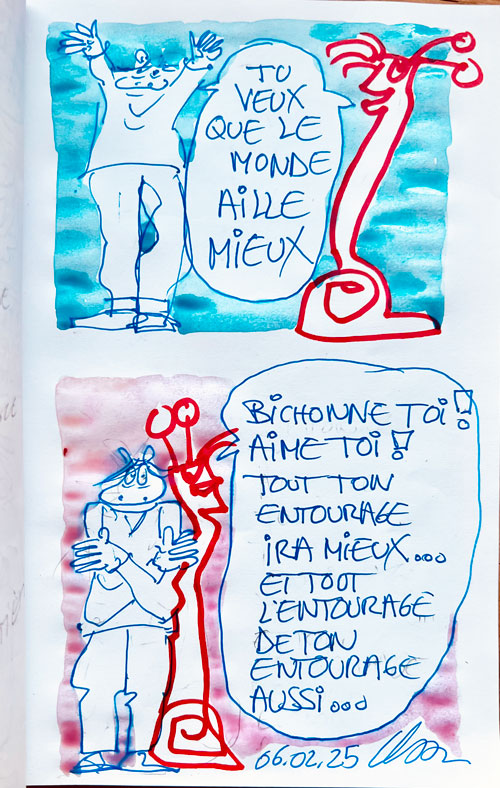 TU
VEUX
QUE LE
MONDE
AILLE
MIEUX
BICHONNE TOI !
AIME TOI !
TOUT TON
ENTOURAGE
IRA MIEUX...
ET TOUT
L'ENTOURAGE
DE TON
ENTOURAGE
AUSSI...
06.02.25